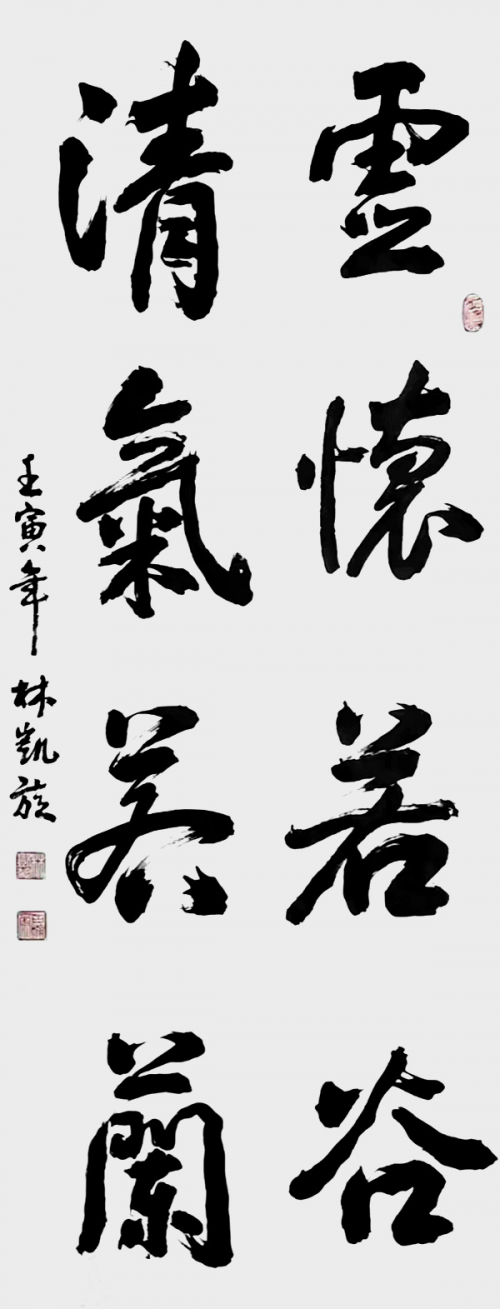 虛懷若谷
清氣若蘭
壬寅年 林凱旋